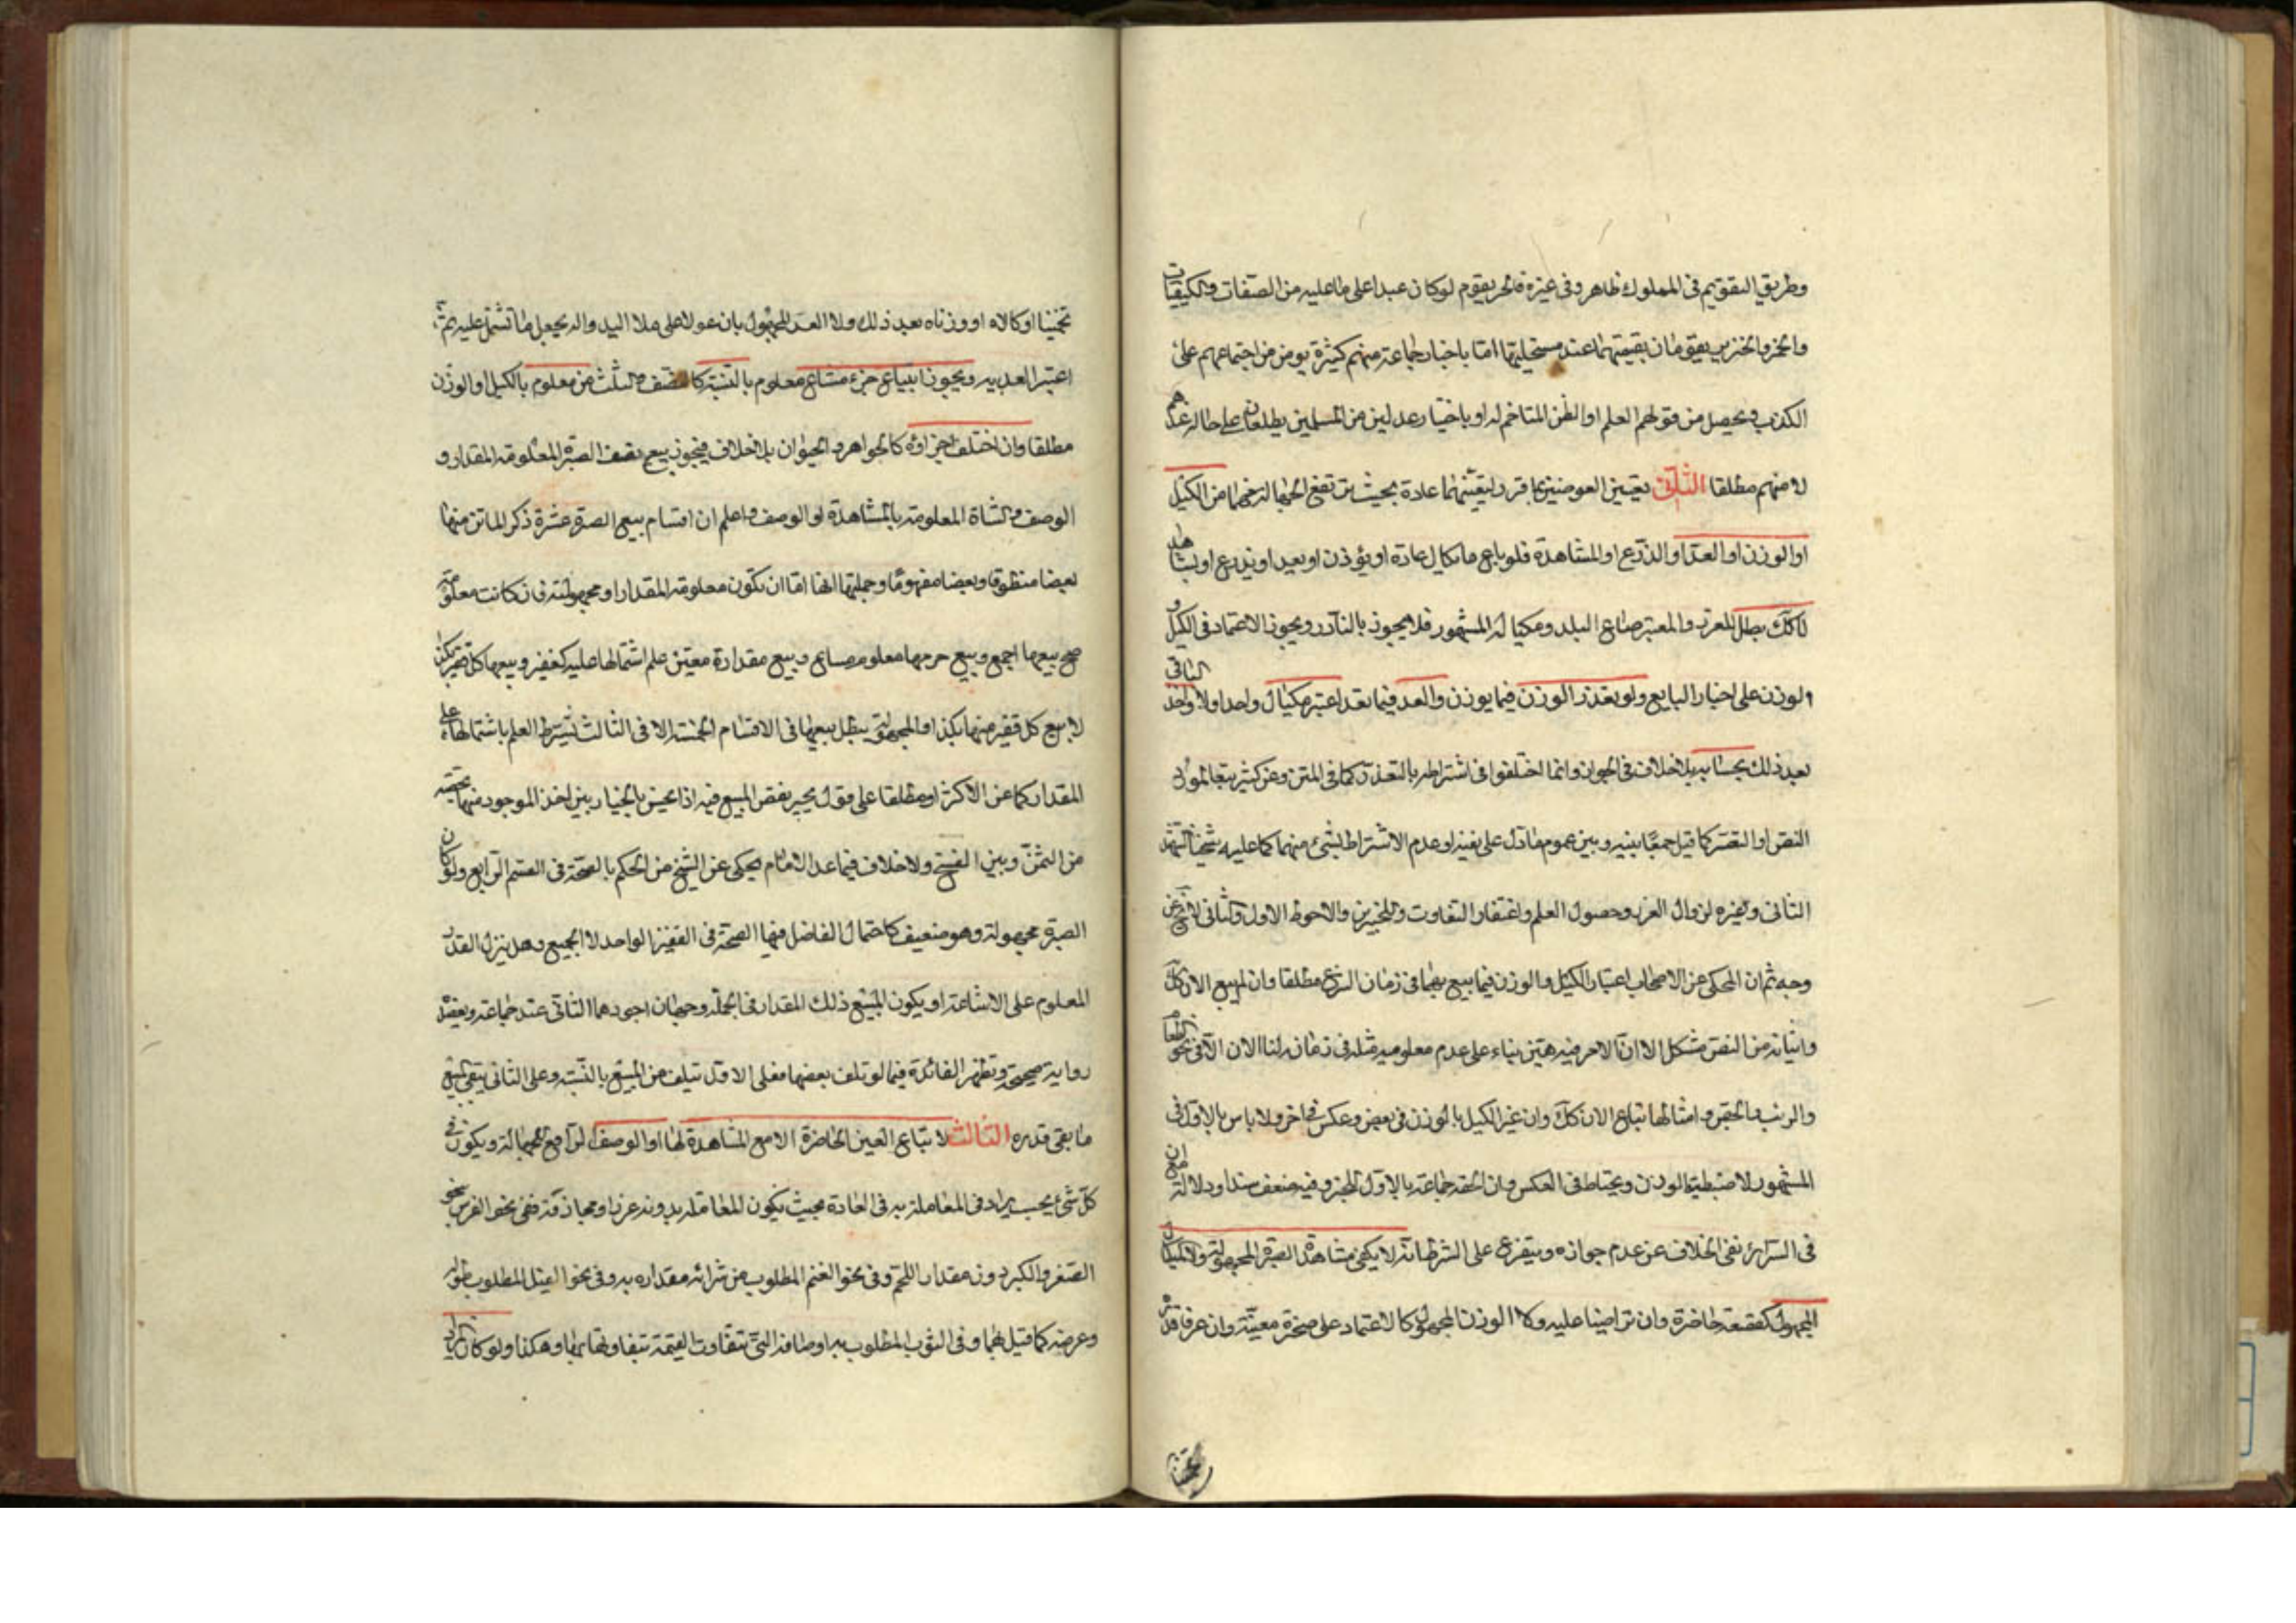 وطريق التقويم في المملوك ظاهر وفي غيره فالحر يقوم لو كان عبدا على ما عليه من الصفات والكيفيات
والخمر والخنزير يقومان بقيمتهما عند مستحليهما اما باخبار جماعة منهم كثيرة يومن من اجتماعهم على
الكذب ويحصل من قولهم العلم او الظن المتاخم له او باخبار عدلين من المسلمين يطلعان على حاله عندهم
لا منهم مطلقا الثاني تعيين العوضين بما قرر لتعينهما عادة بحيث ترتفع الجهالة عنهما من الكيل
او الوزن او العد او الذرع او المشاهدة فلو باع ما يكال عادة او يوزن او يعد او يذرع او يشاهد
لا كك بطل للغرر والمعتبر صاع البلد ومكياله المشهور فلا يجوز بالنادر ويجوز الاعتماد في الكيل و
الوزن على اخبار البايع ولو تعذر الوزن فيما يوزن والعد فيما يعد اعتبر مكيال واحد اولا واخذ الباقي
بعد ذلك بحسابه بلا خلاف في الجواز وانما اختلفوا في اشتراطه بالتعذر كما في المتن وعن كثير تبعا لمورد
النص او التعسر كما قيل جمعا بينه وبين عموم ما دل على نفيه او عدم الاشتراط بشيء منهما كما عليه شيخنا الشهيد
الثاني وغيره لزوال الغرر وحصول العلم واغتفار التفاوت وللخبرين والاحوط الاول والثاني لا يخ عن
وجه ثم ان المحكي عن الاصحاب اعتبار الكيل والوزن فيما بيع بهما في زمان الشرع مطلقا وان لم يبع الان كك
واثباته من النص مشكل الا ان الامر فيه هين بناء على عدم معلومية مثله في زمانه لنا الان الا في نحو الطعام
والزيت والجص وامثالها تباع الان كك وان غير الكيل بالوزن في بعض وعكس في اخر ولا باس بالاول في
المشهور لاضبطية الوزن ويحتاط في العكس وان الحقه جماعة بالاول للخبر وفيه ضعف سندا ودلالة مع ان
في السرائر نفى الخلاف عن عدم جوازه ويتفرع على الشرط انه لا يكفي مشاهدة الصبرة المجهولة ولا المكيال
المجهول كقصعة حاضرة وان تراضيا عليه ولا الوزن المجهول كالاعتماد على صخرة معينة وان عرفا قدره
تخمينا
تخمينا او كالاه او وزناه بعد ذلك ولا العد المجهول بان عولا على ملا اليد واله يجعل ما تشتمل عليه ثم
اعتبر العد به ويجوز ابتياع جزء مشاع معلوم بالنسبة كالنصف والثلث من معلوم بالكيل او الوزن
مطلقا وان اختلف اجزاؤه كالجواهر والحيوان بلا خلاف فيجوز بيع نصف الصبرة المعلومة المقدار و
الوصف والشاة المعلومة بالمشاهدة او الوصف واعلم ان اقسام بيع الصبرة عشرة ذكر الماتن منها
بعضا منطوقا وبعضا مفهوما وجملتها انها اما ان تكون معلومة المقدار او مجهولته فان كانت معلومة
صح بيعها اجمع وبيع جزء منها معلوم مشاع وبيع مقدار معين علم اشتمالها عليه كقفيز وبيعها كل قفيز بكذا
لا بيع كل قفيز منها بكذا والمجهولة يبطل بيعها في الاقسام الخمسة الا في الثالث بشرط العلم باشتمالها على
المقدار كما عن الاكثر او مطلقا على قول يجبر نقص المبيع فيه اذا تحقق بالخيار بين اخذ الموجود منها بحصته
من الثمن وبين الفسخ ولا خلاف فيما عدا الا ما يحكى عن الشيخ من الحكم بالصحة في القسم الرابع ولو كان
الصبرة مجهولة وهو ضعيف كاحتمال الفاضل فيها الصحة في القفيز الواحد لا الجميع وهل ينزل القدر
المعلوم على الاشاعة او يكون المبيع ذلك المقدار في الجملة وجهان اجودهما الثاني عند جماعة ويعضده
رواية صحيحة وتظهر الفائدة فيما لو تلف بعضها فعلى الاول تتلف من المبيع بالنسبة وعلى الثاني يبقى المبيع
ما بقي قدره الثالث لا تباع العين الحاضرة الا مع المشاهدة لها او الوصف الرافع للجهالة ويكون في
كل شيء بحسب يراد في المعاملة به في العادة بحيث يكون المعاملة بدونه غررا ومجازفة ففي نحو الفرس نحو
الصغر والكبر دون مقدار اللحم وفي نحو الغنم المطلوب من شرائه مقداره به وفي نحو الفيل المطلوب طوله
وعرضه كما قيل هما وفي الثوب المطلوب به اوصافه التي تتفاوت القيمة بتفاوتها بها وهكذا ولو كان المراد